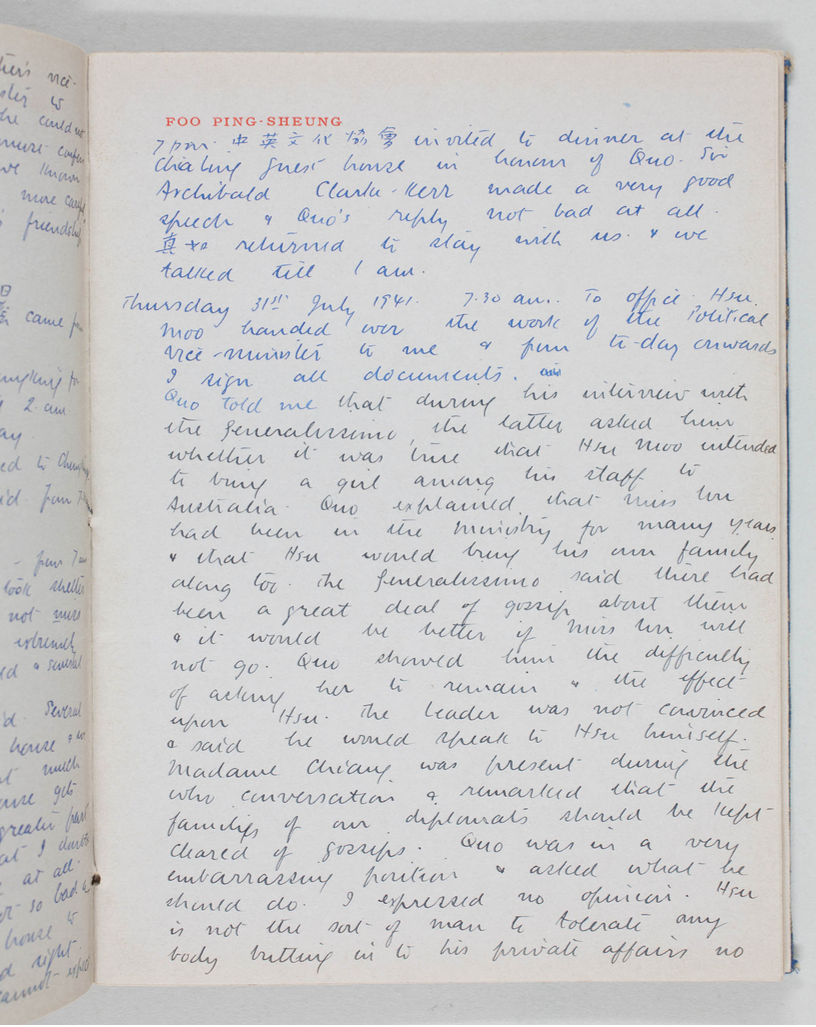 ther's vice-
he could not
must
we known
more
friendship
came
2 am.
ay.
ed to
- from 7 am
took shelter
not more
extremely
ed & several
d. Several
house &
t much
gets
greater part
at I doubt
at all.
or so bad a
house to
d right.
cannot
FOO PING-SHEUNG
7 pm. 中英文化協會 invited to dinner at the
Chialing guest house in honour of Quo. Sir
Archibald Clark-Kerr made a very good
speech & Quo's reply not bad at all.
returned to stay with us. & we
talked till 1 am.
Thursday 31st July 1941. 7.30 am. To office. Hsu
Moo handed over the work of the Political
Vice-minister to me & from to-day onwards
I sign all documents.
Quo told me that during his interview with
the Generalissimo, the latter asked him
whether it was true that Hsu Moo intended
to bring a girl among his staff to
Australia. Quo explained that Miss
had been in the Ministry for many years
& that Hsu would bring his own family
along too. The Generalissimo said there had
been a great deal of gossip about them
& it would be better if Miss will
not go. Quo showed him the difficulty
of asking her to remain & the effect
upon Hsu. The leader was not convinced
& said he would speak to Hsu himself.
Madame Chiang was present during the
who conversation & remarked that the
families of our diplomats should be kept
cleared of gossips. Quo was in a very
embarrassing position & asked what he
should do. I expressed no opinion. Hsu
is not the sort of man to tolerate any
body butting in to his private affairs no